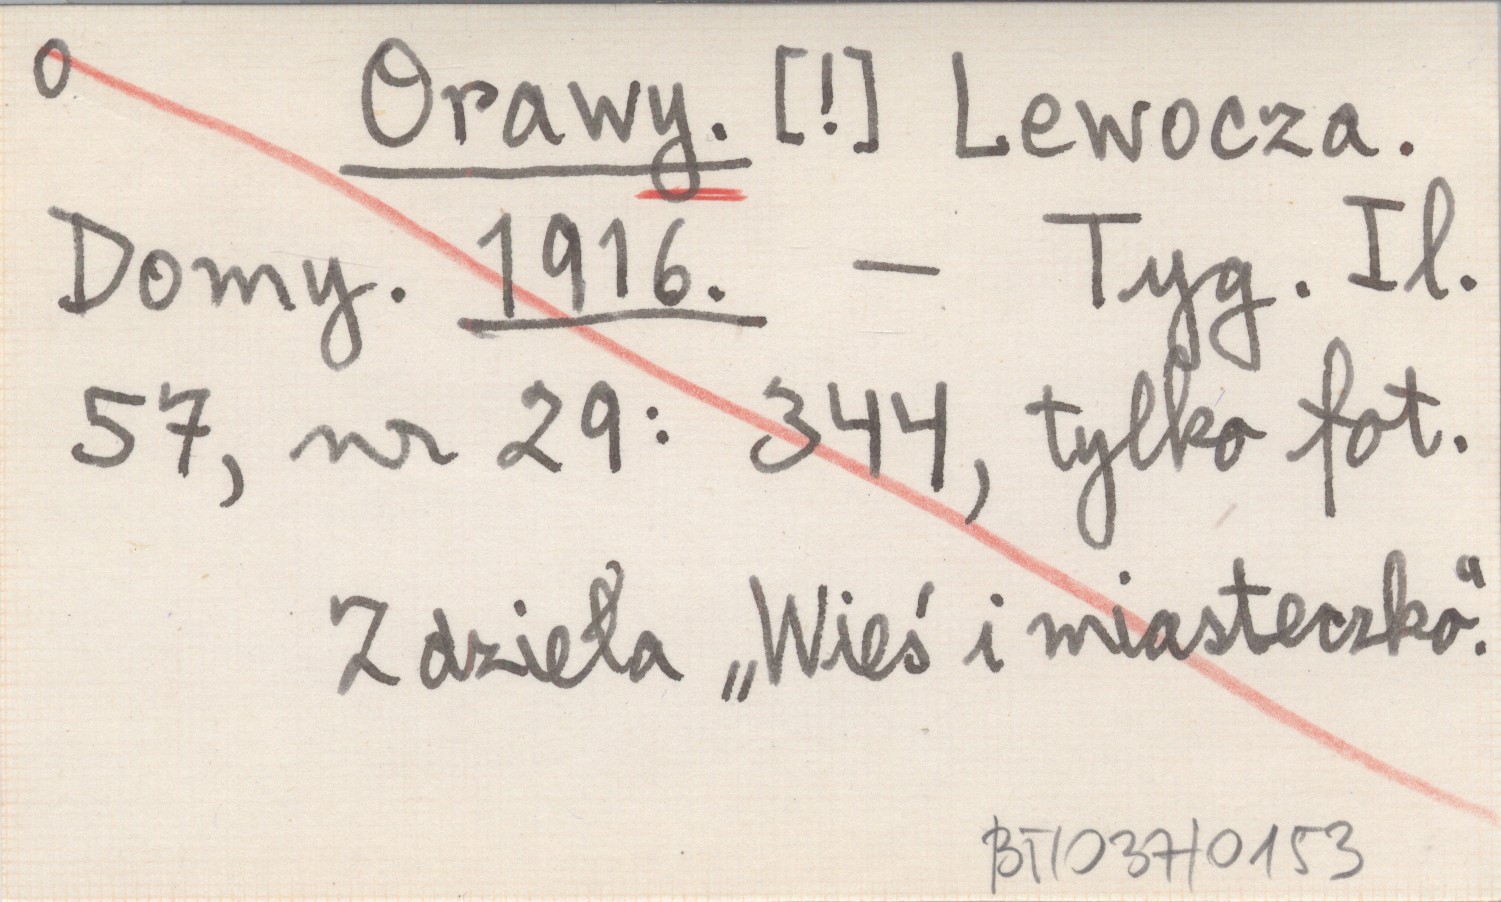 O Orawy. [!] Lewocza.
Domy. 1916. — Tyg. Il.
57, nr 29: 344, tylko fot.
Z dzieła „Wieś i miasteczko".
BT/037/0153